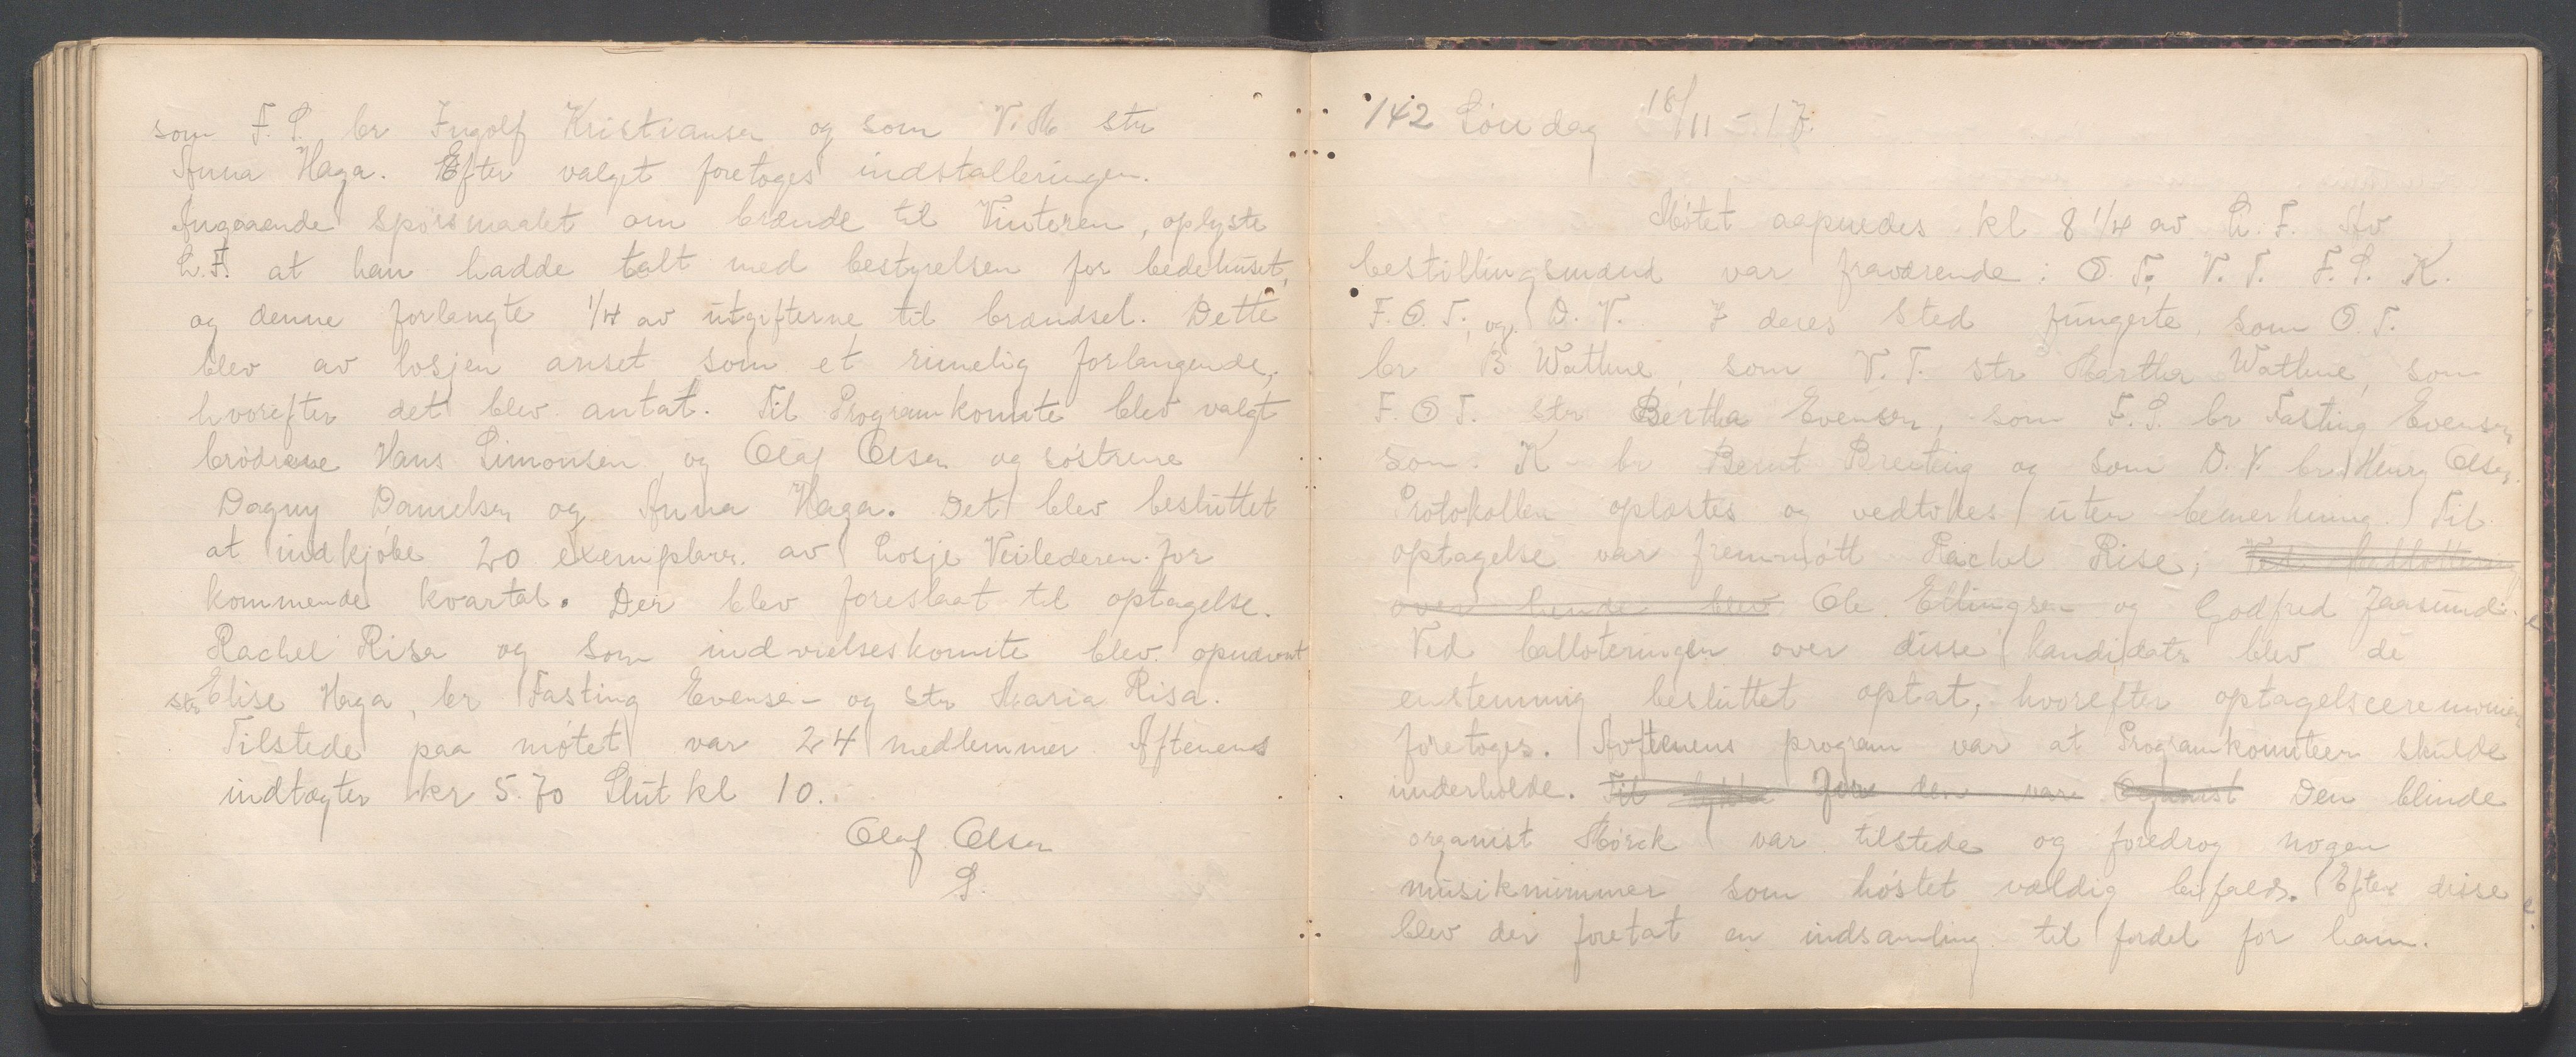 som F. S. br Ingolf Kristiansen og som V. M. str
Anna Haga. Efter valget foretoges indstalleringen.
Angaaende spörsmaalet om brænde til Vinteren, oplyste
L. F. at han hadde talt med bestyrelsen for bedehuset,
og denne forlangte 1/4 av utgifterne til brændsel. Dette
blev av losjen anset som et rimelig forlangende,
hvorefter det blev antat. Til Programkomite blev valgt
brödrene Hans Simonsen og Olaf Olsen og söstrene
Dagny Danielsen og Anna Haga. Det blev besluttet
at indkjöbe 20 exemplarer av Losje Veilederen for
kommende kvartal. Der blev foreslaat til optagelse.
Rachel Risa og som indvielseskomite blev opnævnt
str Elise Haga, br Fasting Evensen og str Maria Risa.
Tilstede paa mötet var 24 medlemmer. Aftenens
indtægter kr 5.70 Slut kl 10.
Olaf Olsen
S.
142 Söndag 18/11 - 17.
Mötet aapnedes kl 8 1/4 av L. F. Av
bestillingsmænd var fraværende: O. T., V. T. F. S. K.
F. O. T., og D. V. I deres sted fungerte, som O. T.
br B Wathne, som V. T. str Martha Wathne, som
F. O T. str Bertha Evensen, som F. S. br Fasting Evensen,
som K - br Bernt Breiteig og som D. V. br Henry Olsen.
Protokollen oplæstes og vedtokes uten bemerkning. Til
optagelse var fremmött Rachel Rise, Ved ballotteringen
over hende blev Ole Ellingsen og Godfred Jaasund.
Ved balloteringen over disse kandidater blev de
enstemmig besluttet optat, hvorefter optagelsceremonien
foretoges. Avftenens program var at Programkomiteen skulde
underholde. Til for den var Organist Den blinde
organist Mörck var tilstede og foredrog nogen
musiknummer som höstet vældig beifald. Efter disse
blev der foretat en indsamling til fordel for ham.